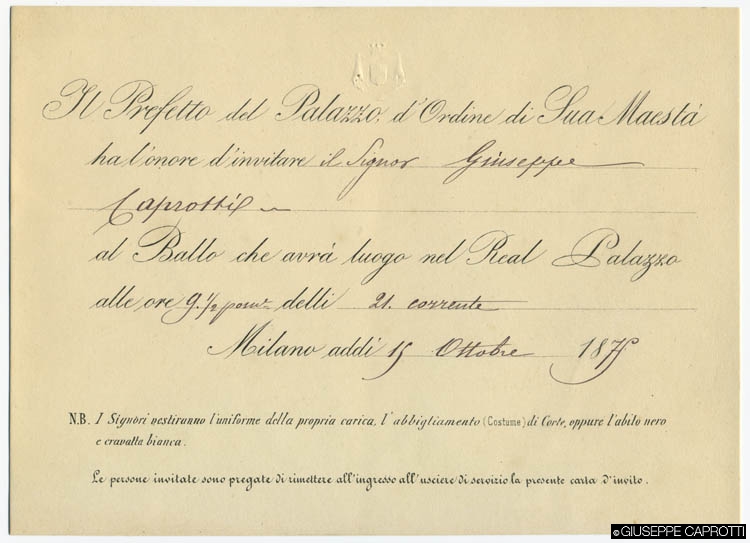 Il Prefetto del Palazzo, d'Ordine di Sua Maestà
ha l'onore d'invitare il Signor Giuseppe
Caprotti
al Ballo che avrà luogo nel Real Palazzo
alle ore 9 1/2 pom.e delli 21. corrente
Milano addi 15 Ottobre 1875
N.B. I Signori vestiranno l'uniforme della propria carica, l'abbigliamento (Costume) di Corte, oppure l'abito nero
e cravatta bianca.
Le persone invitate sono pregate di rimettere all'ingresso all'usciere di servizio la presente carta d'invito.
©GIUSEPPE CAPROTTI